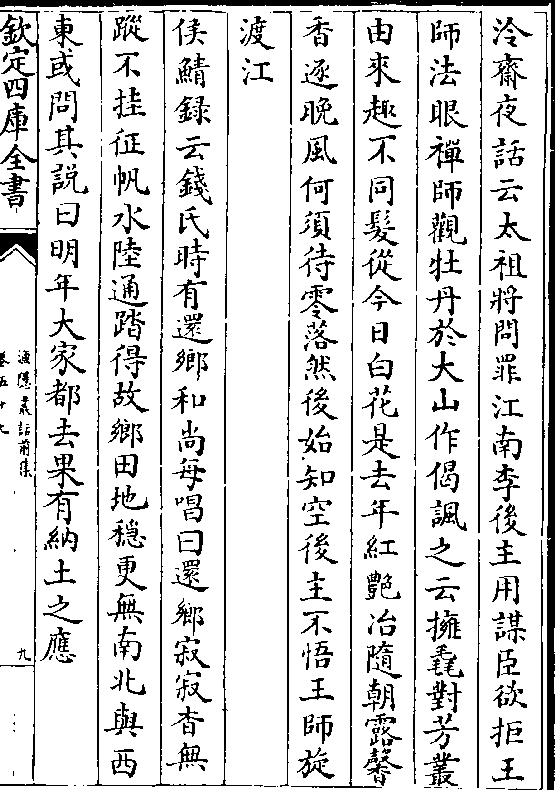 泠齋夜話云太祖將問罪江南李後主用謀臣欲拒王
師法眼禪師觀牡丹於大山作偈諷之云擁毳對芳叢
由來趣不同髮從今日白花是去年紅艷冶隨朝露馨
香逐晚風何須待零落然後始知空後主不悟王師旋
渡江
侯鯖録云錢氏時有還鄉和尚每唱曰還鄉寂寂杳無
蹤不挂征帆水陸通踏得故鄉田地穩更無南北與西
東或問其説曰明年大家都去果有納土之應
欽定四庫全書
漁隱叢話前集
卷五十九
九